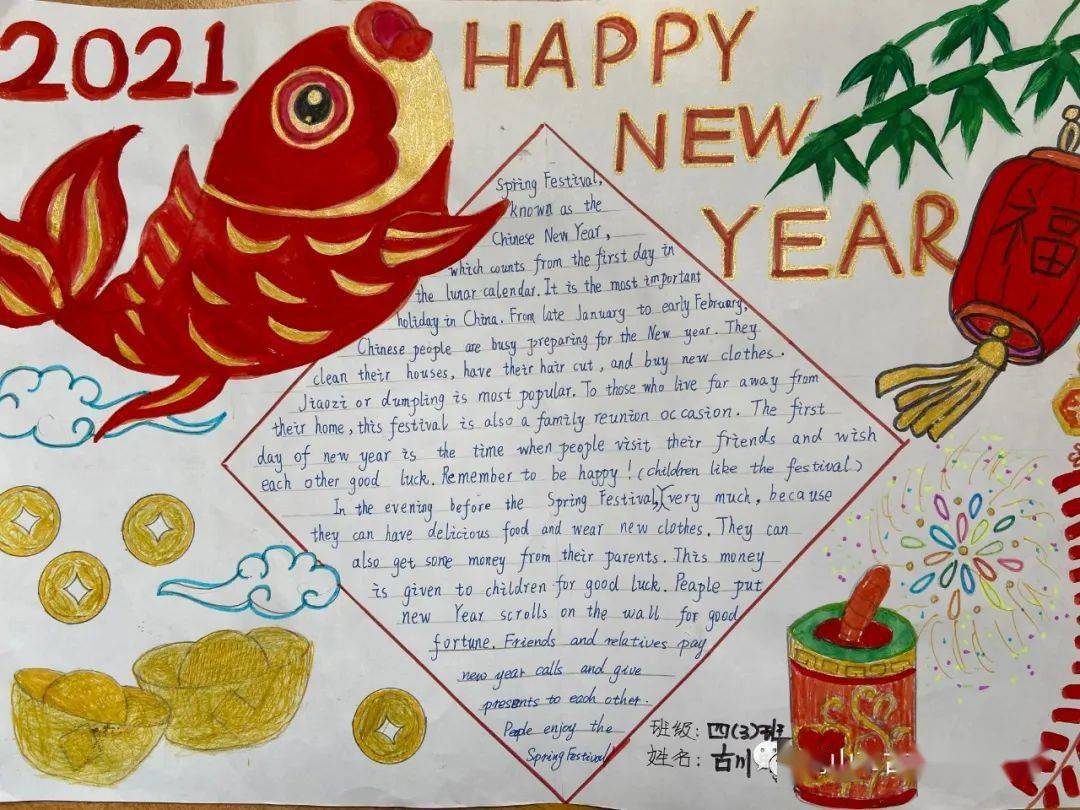 2021
HAPPY
NEW
YEAR
福
Spring Festival,
known as the
Chinese New Year,
which counts from the first day in
the lunar calendar. It is the most important
holiday in China. From late January to early February,
Chinese people are busy preparing for the New year. They
clean their houses, have their hair cut, and buy new clothes.
Jiaozi or dumpling is most popular. To those who live far away from
their home, this festival is also a family reunion occasion. The first
day of new year is the time when people visit their friends and wish
each other good luck. Remember to be happy! (children like the festival)
In the evening before the Spring Festival, (very much, because
they can have delicious food and wear new clothes. They can
also get some money from their parents. This money
is given to children for good luck. Peaple put
new Year scrolls on the wall for good
fortune. Friends and relatives pay
new year calls and give
presents to each other.
People enjoy the
Spring Festival!
班级: 四(3)班
姓名: 古川